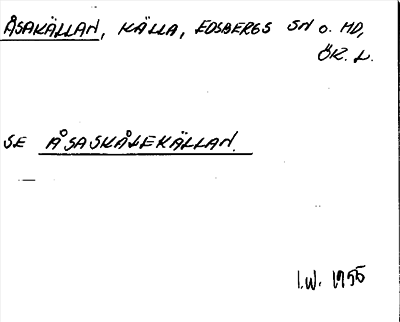 ÅSAKÄLLAN, KÄLLA, EDSBERGS SN O. HD,
ÖR. L.
SE ÅSASKÅLEKÄLLAN.
I.W. 1955